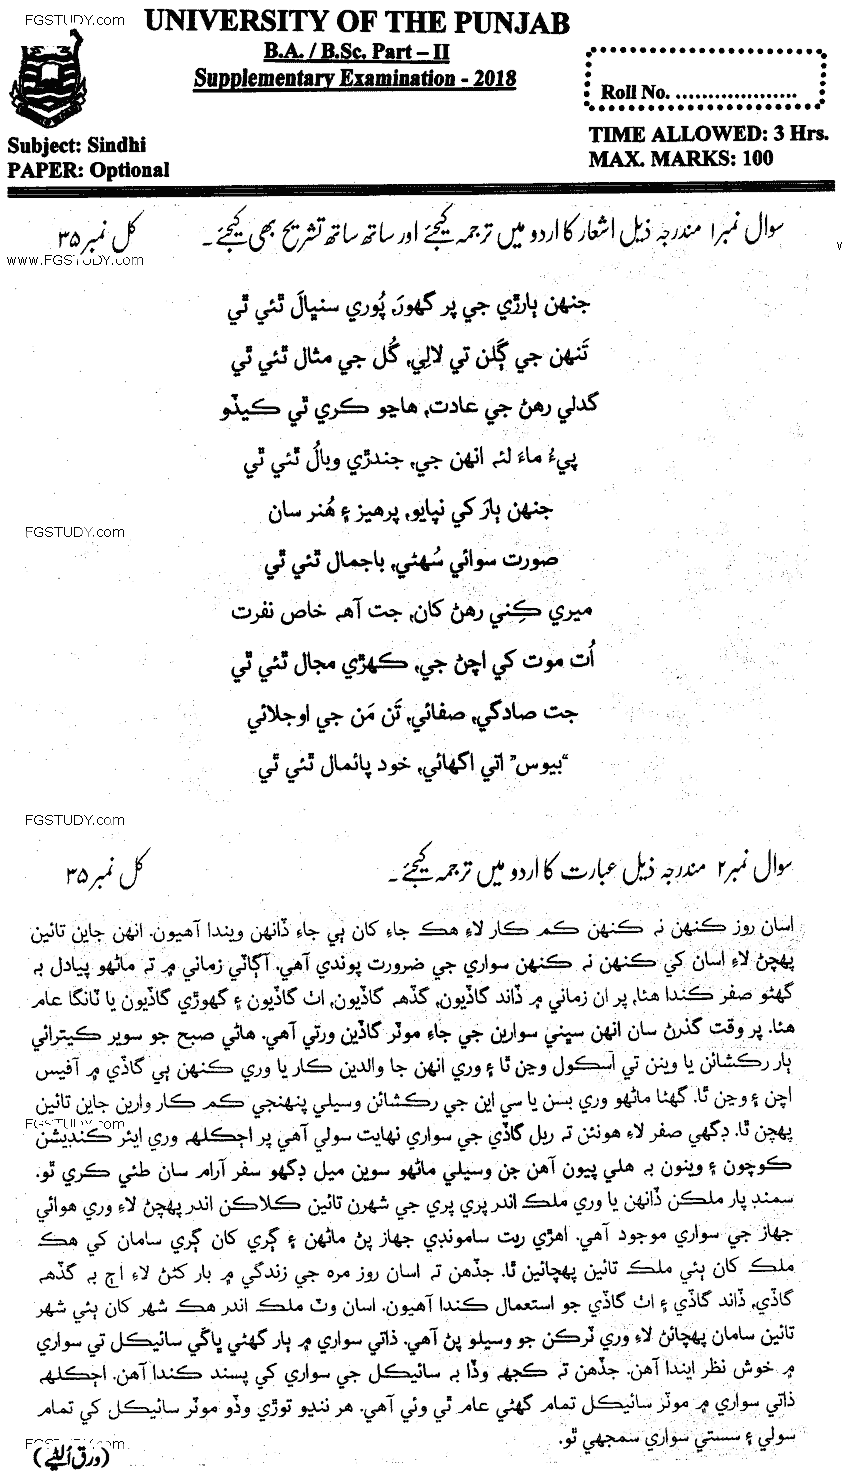 FGSTUDY.com
UNIVERSITY OF THE PUNJAB
B.A. / B.Sc. Part – II
Supplementary Examination - 2018
Roll No. ....................
Subject: Sindhi
PAPER: Optional
TIME ALLOWED: 3 Hrs.
MAX. MARKS: 100
سوال نمبر۱ مندرجہ ذیل اشعار کا اردو میں ترجمہ کیجئے اور ساتھ ساتھ تشریح بھی کیجئے۔ کل نمبر ۳۵
www.FGSTUDY.com
جنهن ٻارڙي جي پر گهورَ، پُوري سنڀالَ ٿئي ٿي
تَنهن جي ڳلن تي لالِي، گُل جي مثال ٿئي ٿي
گدلي رهڻ جي عادت، هاڃو ڪري ٿي ڪيڏو
پيءُ ماءَ لئہ انهن جي، جندڙي وبالُ ٿئي ٿي
جنهن ٻارَ کي نپايو، پرهيز ۽ هُنر سان
FGSTUDY.com
صورت سوائي سُهڻي، باجمال ٿئي ٿي
ميري ڪِني رهڻ کان، جت آهہ خاص نفرت
اُت موت کي اچڻ جي، ڪهڙي مجال ٿئي ٿي
جت صادگي، صفائي، تَن مَن جي اوجلائي
“بيوس” اتي اگهائي، خود پائمال ٿئي ٿي
FGSTUDY.com
سوال نمبر ۲ مندرجہ ذیل عبارت کا اردو میں ترجمہ کیجئے۔ کل نمبر ۳۵
اسان روز ڪنهن نہ ڪنهن ڪم ڪار لاءِ هڪ جاءِ کان ٻي جاءِ ڏانهن ويندا آهيون. انهن جاين تائين
پهچڻ لاءِ اسان کي ڪنهن نہ ڪنهن سواري جي ضرورت پوندي آهي. آڳاٽي زماني ۾ تہ ماڻهو پيادل بہ
گهڻو صفر ڪندا هئا، پر ان زماني ۾ ڏاند گاڏيون، گڏهہ گاڏيون، اٺ گاڏيون ۽ گهوڙي گاڏيون يا ٽانگا عام
هئا. پر وقت گذرڻ سان انهن سڀني سوارين جي جاءِ موٽر گاڏين ورتي آهي. هاڻي صبح جو سوير ڪيترائي
ٻار رڪشائن يا وينن تي اسڪول وڃن ٿا ۽ وري انهن جا والدين ڪار يا وري ڪنهن ٻي گاڏي ۾ آفيس
اچن ۽ وڃن ٿا. گهڻا ماڻهو وري بسن يا سي اين جي رڪشائن وسيلي پنهنجي ڪم ڪار وارين جاين تائين
FGSTUDY.com
پهچن ٿا. ڊگهي صفر لاءِ هونئن تہ ريل گاڏي جي سواري نهايت سولي آهي پر اڄڪلهہ وري ايئر ڪنڊيشن
ڪوچون ۽ وينون بہ هلي پيون آهن جن وسيلي ماڻهو سوين ميل ڊگهو سفر آرام سان طئي ڪري ٿو.
سمنڊ پار ملڪن ڏانهن يا وري ملڪ اندر پري پري جي شهرن تائين ڪلاڪن اندر پهچڻ لاءِ وري هوائي
جهاز جي سواري موجود آهي. اهڙي ريت سامونڊي جهاز پڻ ماڻهن ۽ ڳري کان ڳري سامان کي هڪ
ملڪ کان ٻئي ملڪ تائين پهچائين ٿا. جڏهن تہ اسان روز مره جي زندگي ۾ بار کڻڻ لاءِ اڄ بہ گڏهہ
گاڏي، ڏاند گاڏي ۽ اٺ گاڏي جو استعمال ڪندا آهيون. اسان وٽ ملڪ اندر هڪ شهر کان ٻئي شهر
تائين سامان پهچائڻ لاءِ وري ٽرڪن جو وسيلو پڻ آهي. ذاتي سواري ۾ ٻار گهڻي ڀاڱي سائيڪل تي سواري
۾ خوش نظر ايندا آهن. جڏهن تہ ڪجهہ وڏا بہ سائيڪل جي سواري کي پسند ڪندا آهن. اڄڪلهہ
ذاتي سواري ۾ موٽر سائيڪل تمام گهڻي عام ٿي وئي آهي. هر ننڍو توڙي وڏو موٽر سائيڪل کي تمام
سولي ۽ سستي سواري سمجهي ٿو.
FGSTUDY.com
(ورق اُلٹیے)